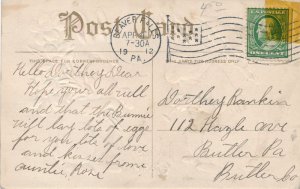 Post Card
BEAVER FALLS
APR
7-30A
1912
PA.
THIS SPACE FOR CORRESPONDENCE
THE ADDRESS ONLY
Hello Dorthey Dear
Hope your all well
and that the Bunnie
will lay lots of eggs
for you, lots of love
and kisses from
auntie, Rose
Dorthey Rankin
112 Hazle ave
Butler Pa
Butler Co